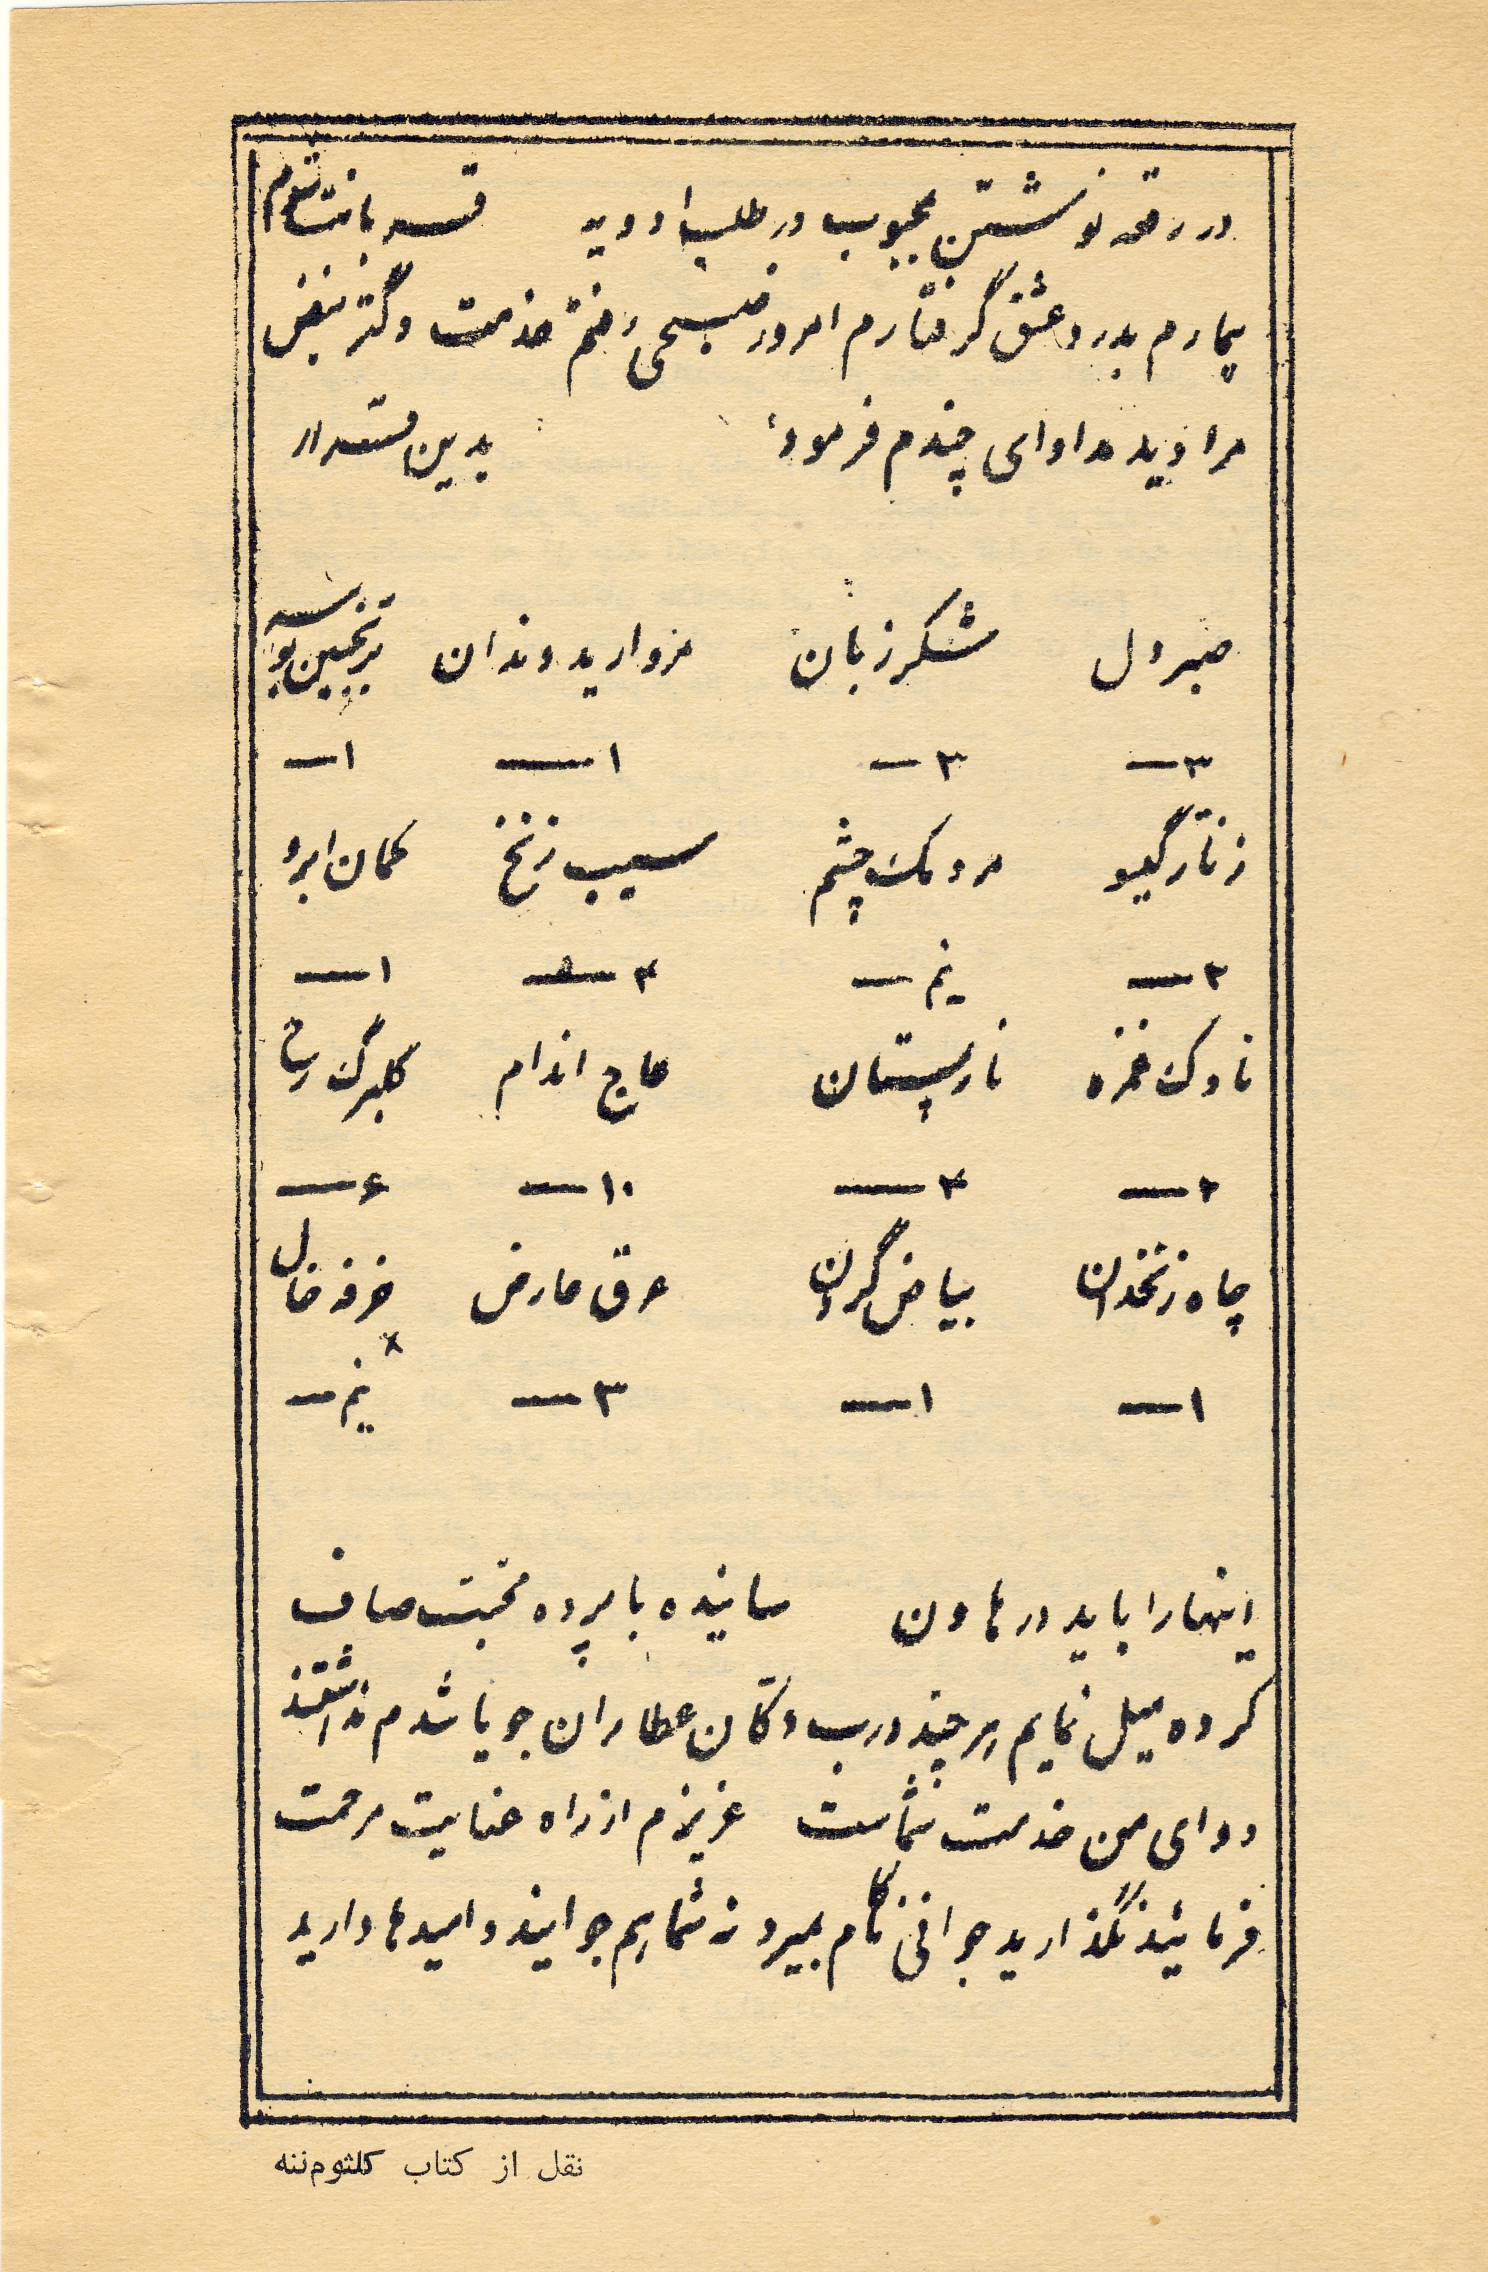 در رقعه نوشتن محبوب در طلب ادویه قسه بانت شوم
بیمارم بدرد عشق گرفتارم امروز صبحی رفتم خدمت دکتر نبض
مرا دید مداوای چندم فرمود بدین مقدار
صبر دل شکر زبان مروارید دندان ترنجبین بوسه
۳ ۳ ۱ ۱
زنار گیسو مردمک چشم سیب زنخ کمان ابرو
۲ نیم ۴ ۱
ناوک غمزه نار پستان عاج اندام گلبرگ
۲ ۴ ۱۰ ۶
چاه زنخدان بیاض گردن عرق عارض خرفه خال
۱ ۱ ۳ نیم
اینها را باید در هاون سائیده با پرده محبت صاف
کرده میل نمایم هر چند درب دکان عطاران جویا شدم نداشتند
دوای من خدمت شماست عزیزم از راه عنایت مرحمت
فرمائید نگذارید جوانی ناکام بمیرد نه شما هم جوانید و امیدها دارید
نقل از کتاب کلثوم‌ننه